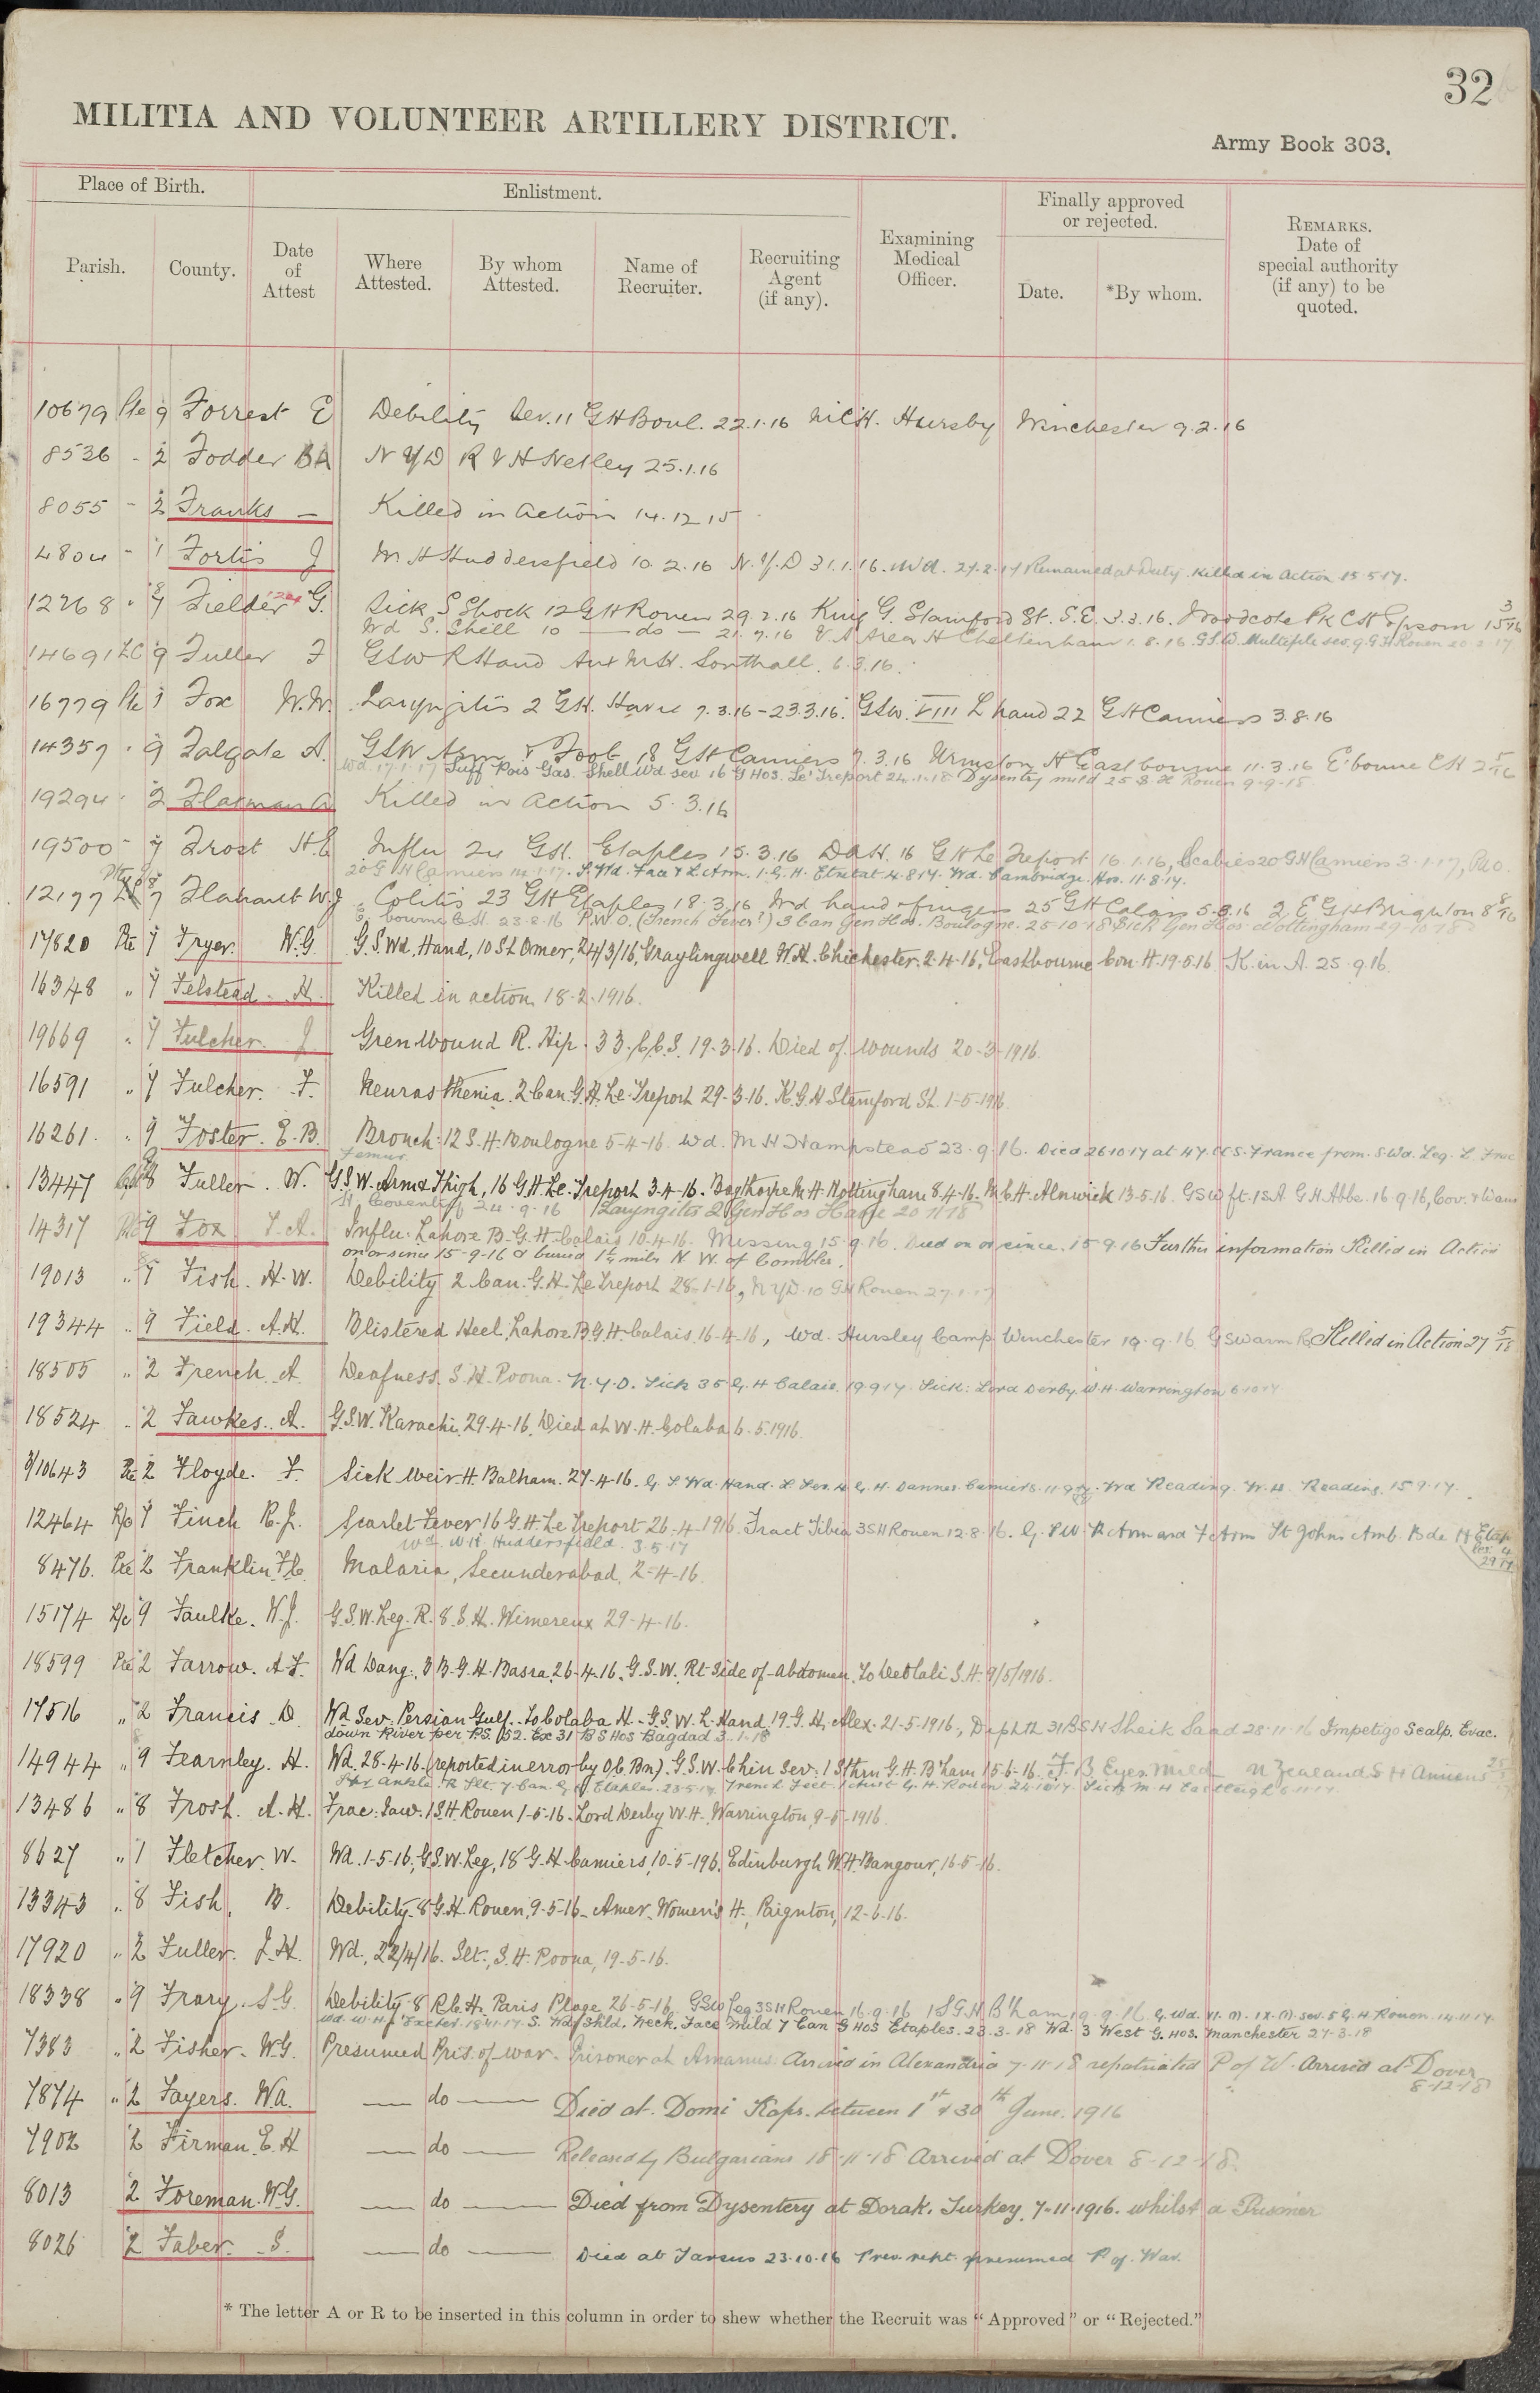 32
MILITIA AND VOLUNTEER ARTILLERY DISTRICT.
Army Book 303.
Place of Birth. Enlistment. Examining Medical Officer. Finally approved or rejected. REMARKS. Date of special authority (if any) to be quoted.
Parish. County. Date of Attest Where Attested. By whom Attested. Name of Recruiter. Recruiting Agent (if any). Date. *By whom.
10679 Pte 9 Forrest E Debility Sev. 11 GH Boul. 22.1.16 Mil C H. Hursby Winchester 9.2.16
8536 - 2 Fodder BA N Y D R V H Netley 25.1.16
8055 - 2 Franks — Killed in action 14.12.15
4804 - 1 Fortis J M. H Huddersfield 10.2.16 N.Y.D 31.1.16. Wd. 27.2.17 Remained at Duty. Killed in Action 15.5.17.
12268 - 7 Fielder G. Sick S Shock 12 G H Rouen 29.2.16 King G. Stamford St. S.E. 3.3.16. Woodcote Pk C H Epsom 15 3/16
Wd S. Shell 10 — do — 21.7.16 V A Area H Cheltenham 1.8.16 G.S.W. Multiple sev. 9. G H Rouen 20.2.17
14691 LC 9 Fuller F GSW R Hand Aux M H. Southall. 6.3.16.
16779 Pte 1 Fox W.W. Laryngitis 2 GH. Havre 7.3.16 - 23.3.16. GSW. VIII L hand 22 G H Camiers 3.8.16
14357 " 9 Falgate A. GSW Arm & Foot 18 G H Camiers 7.3.16 Urmston H Eastbourne 11.3.16 E'bourne C H 2 5/16
Wd 17.1.17 Suff Pois Gas. Shell Wd sev 16 G Hos. Le Treport 24.1.18 Dysentry mild 25 S H Rouen 9-9-18
19294 " 2 Flatman A Killed in Action 5.3.16
19500 - 7 Frost H.E Influ 24 GH. Etaples 15.3.16 DAH. 16 G H Le Treport 16.1.16, Scabies 20 G H Camiers 3.1.17, P.U.O.
20 G H Camiers 14.1.17. S. Wd. Face & L Arm. 1. G. H. Etretat 4.8.17. Wd. Cambridge. Hos. 11.8.17.
12177 7 Flavant W.J Colitis 23 G H Etaples 18.3.16 Wd hand & fingers 25 G H Calais 5.8.16 2 E G H Brighton 8 8/16
bourne C.H. 23.8.16 P.U.O. (Trench Fever?) 3 Can Gen Hos. Boulogne. 25-10-18 Sick Gen Hos. Nottingham 29-10-18
17820 Pte 7 Fryer. W.G. G.S.Wd, Hand, 10 St Omer, 24/3/16, Graylingwell W.H. Chichester. 2-4-16, Eastbourne Con. H. 19.5.16 K. in A. 25.9.16.
16348 " 7 Felstead. H. Killed in action, 18-2-1916.
19669 " 7 Fulcher. J Gren Wound R. Hip. 33. C.C.S. 19-3-16. Died of wounds 20-3-1916.
16591 " 7 Fulcher. F. Neurasthenia. 2 Can. G. H. Le Treport 29-3-16. K. G. H Stamford St. 1-5-1916
16261. " 9 Foster. E.B. Bronch: 12 S. H. Boulogne 5-4-16. Wd. M H Hampstead 23.9.16. Died 26.10.17 at 47. CCS. France from. S. Wd. Leg. L Frac
Femur.
13447 8 Fuller. W. G.S.W. Arm & Thigh, 16 G. H. Le. Treport 3-4-16. Bagthorpe M H Nottingham 8.4.16. M.C.H. Alnwick 13-5-16. GSW ft. 1 S.A. G H Abbe. 16.9.16, Cov. & Wars
H. Coventry 24.9.16 Laryngitis 2 Gen Hos Havre 20 1/18
14317 Pte 9 Fox F.A. Influ. Lahore B.G.H. Calais 10-4-16. Missing 15.9.16. Died on or since. 15.9.16 Further information Killed in Action
on or since 15-9-16 & buried 1¼ miles N. W. of Combles.
19013 " 7 Fish. H.W. Debility 2 Can. G. H. Le Treport 28-1-16, NYD. 10 GH Rouen 27.1.17
19344 " 9 Field. A.H. Blistered Heel, Lahore B.G.H. Calais 16-4-16, Wd. Hursley Camp Winchester 19.9.16 GSW arm R. Killed in Action 27 5/18
18505 " 2 French. A. Deafness, S. H. Poona. N.Y.D. Sick 35 G. H Calais. 19.9.17. Sick: Lord Derby W.H. Warrington 6.10.17
18524 - 2 Fawkes. A. G.S.W. Karachi, 29-4-16, Died at W. H. Colaba 6.5.1916.
3/10643 Pte 2 Floyde. F. Sick Weir H. Balham. 27-4-16. G. S Wd. Hand. L. Sev. 4 G. H. Dannes. Camiers. 11.9.17. Wd Reading. W. H. Reading. 15.9.17.
12464 L/c 7 Finch R.J. Scarlet Fever 16 G. H. Le Treport 26-4-1916 Fract Tibia 3 S H Rouen 12.8.16. G. S W. R Arm and F Arm St Johns Amb. Bde H Etap-
Wd. W H Huddersfield. 3.5.17 les. 4 29.17
8476. Pte 2 Franklin F.C. Malaria, Secunderabad, 2-4-16.
15174 L/c 9 Faulke. W.J. G.S.W. Leg. R. 8. S. H. Wimereux 29-4-16.
18599 Pte 2 Farrow. A.F. Wd Dang., 3 B.G.H. Basra. 26-4-16. G.S.W. Rt side of abdomen. To Deolali S.H. 9/5/1916.
17516 " 2 Francis. D Wd Sev. Persian Gulf. To Colaba H. G.S.W. L. Hand. 19. G. H. Alex. 21-5-1916, Diphth 31 B S H Sheik Saad 28.11.16 Impetigo Scalp. Evac.
down River per P.S. 152. Ex 31 B S Hos Bagdad 3.1.18
14944 " 9 Fearnley. H. Wd. 28-4-16. (reported in error by O.C. Bn). G.S.W. Chin Sev. 1 Sthrn G. H. B'ham 15-6-16. F. B Eyes. Mild N Zealand S H Amiens
13486 " 8 Frost. A.H. Frac: Jaw. 1 S.H. Rouen 1-5-16. Lord Derby W. H. Warrington, 9-5-1916
8627 " 1 Fletcher. W. Wd. 1-5-16, G.S.W. Leg, 18 G. H. Camiers, 10-5-196. Edinburgh W.H. Bangour, 16-5-16.
13343 " 8 Fish. B. Debility. 8 G.H. Rouen, 9-5-16. Amer. Women's H., Paignton, 12-6-16.
17920 " 2 Fuller. J.H. Wd. 22/4/16. Slt., S. H. Poona, 19-5-16.
18338 " 9 Frary. S.G. Debility. 8 R.C.H. Paris Plage 26-5-16. GSW Leg 3 S H Rouen 16.9.16 1 S G H B'ham 19.9.16 G. Wd. 5 G. H. Rouen. 14.11.17.
Wd. W. H. Exeter. 18.11.17. S. Wd. Shld. Neck. Face Mild 7 Can G Hos Etaples. 23.3.18 Wd. 3 West G. Hos. Manchester 27-3-18
7383 " 2 Fisher. W.G. Presumed Pris. of war. Prisoner at Amanus: Arrived in Alexandria 7-11-18 repatriated P of W. Arrived at Dover
8-12-18
7874 " 2 Fayers. Wa. — do — Died at. Domi Kapr. between 1st & 30th June. 1916
7902 2 Firman. E. H — do — Released by Bulgarians 18-11-18 Arrived at Dover 8-12-18.
8013 2 Foreman. W.G. — do — Died from Dysentery at Dorak. Turkey. 7-11-1916. whilst a Prisoner
8026 2 Faber. S. — do — Died at Tarsus 23.10.16 Prev. rept. presumed P of. War.
* The letter A or R to be inserted in this column in order to shew whether the Recruit was "Approved" or "Rejected."